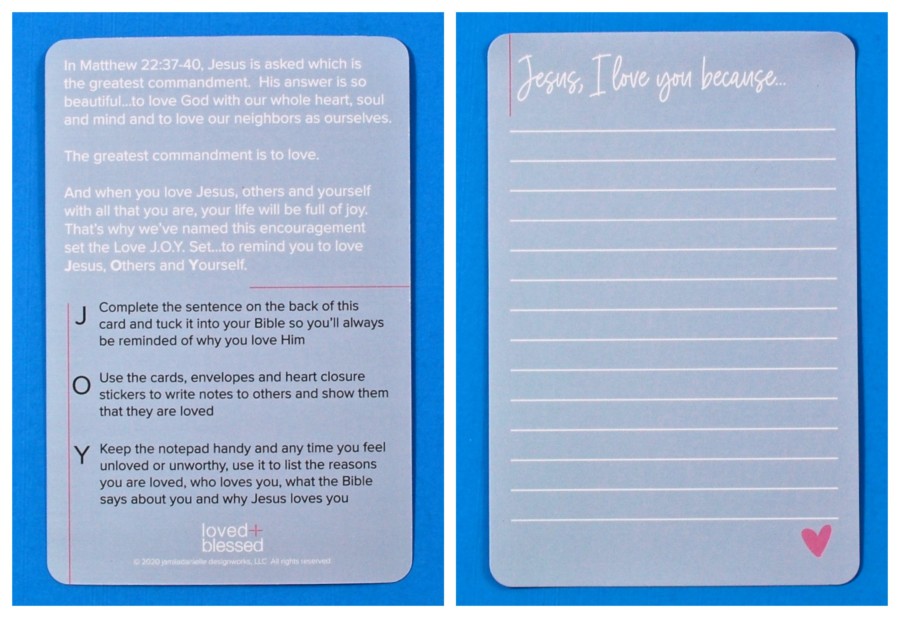 In Matthew 22:37-40, Jesus is asked which is
the greatest commandment. His answer is so
beautiful...to love God with our whole heart, soul
and mind and to love our neighbors as ourselves.
The greatest commandment is to love.
And when you love Jesus, others and yourself
with all that you are, your life will be full of joy.
That's why we've named this encouragement
set the Love J.O.Y. Set...to remind you to love
Jesus, Others and Yourself.
J Complete the sentence on the back of this
card and tuck it into your Bible so you'll always
be reminded of why you love Him
O Use the cards, envelopes and heart closure
stickers to write notes to others and show them
that they are loved
Y Keep the notepad handy and any time you feel
unloved or unworthy, use it to list the reasons
you are loved, who loves you, what the Bible
says about you and why Jesus loves you
loved+
blessed
© 2020 designworks, LLC All rights reserved
Jesus, I love you because...